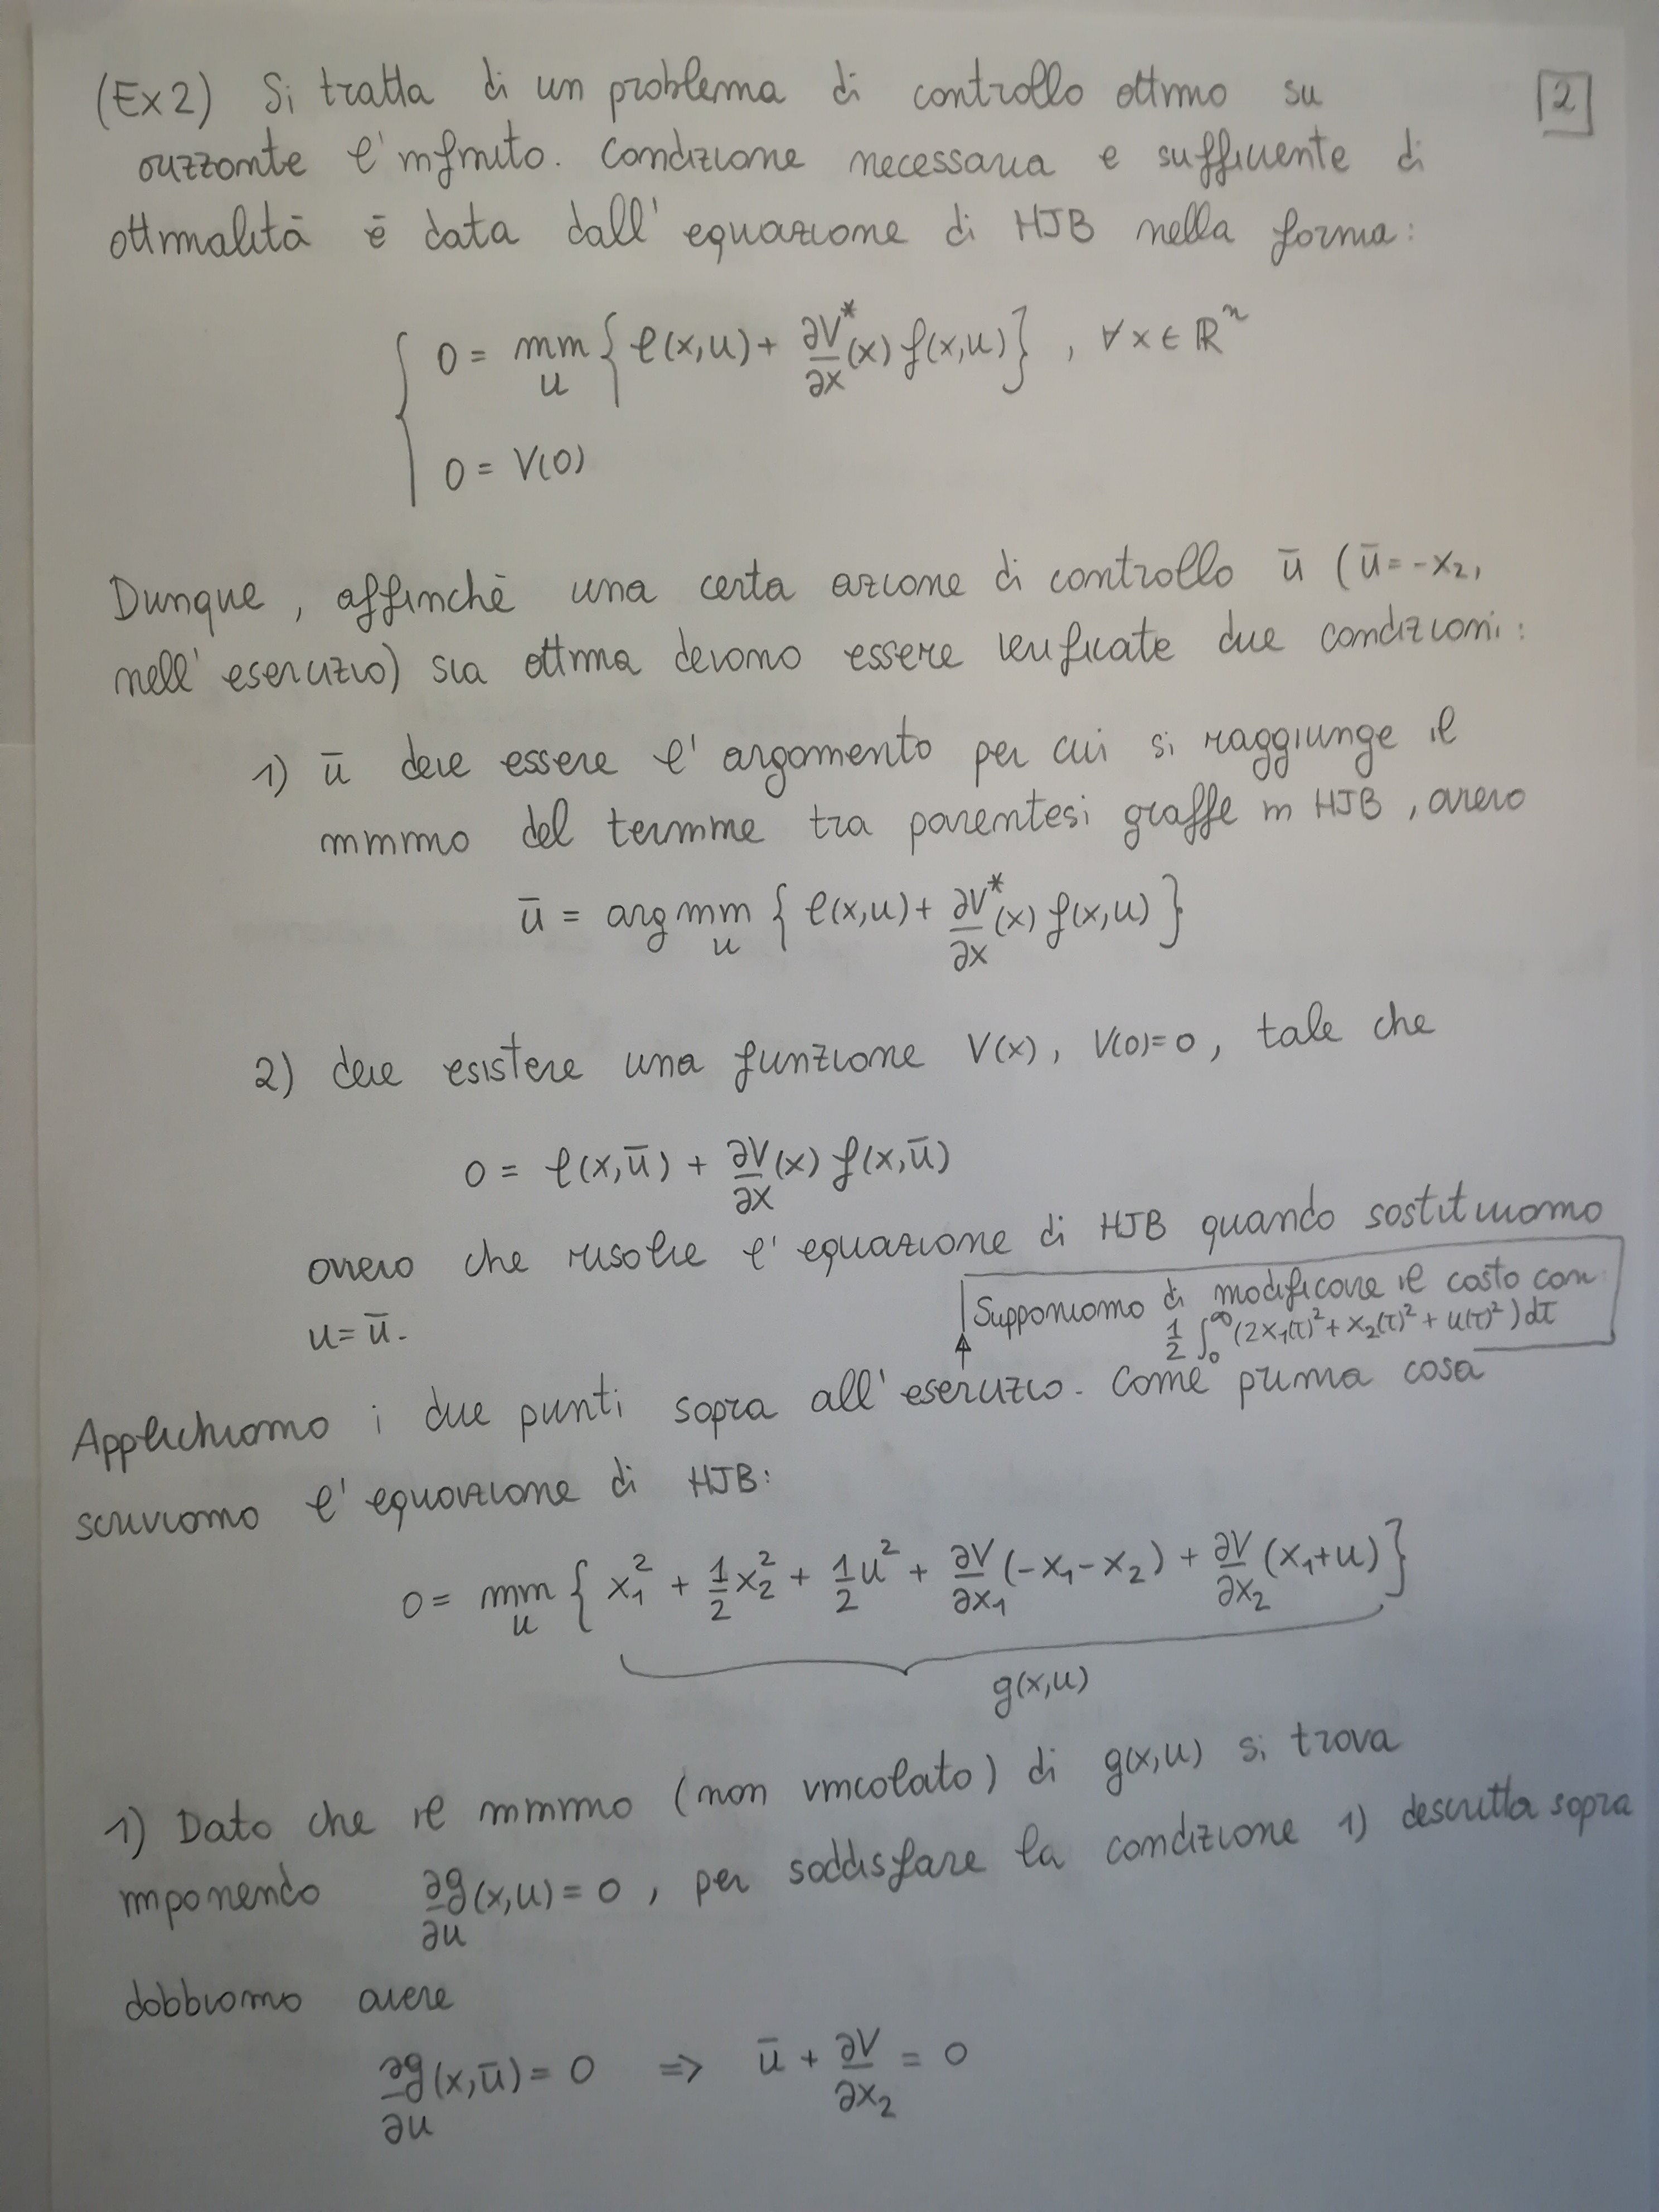 (Ex2) Si tratta di un problema di controllo ottimo su
2
orizzonte l'infinito. Condizione necessaria e sufficiente di
ottimalità è data dall'equazione di HJB nella forma:
0 = min_u { ℓ(x,u) + ∂V*/∂x (x) f(x,u) } , ∀ x ∈ ℝⁿ
0 = V(0)
Dunque, affinchè una certa azione di controllo ū (ū = -x₂,
nell'esercizio) sia ottima devono essere verificate due condizioni:
1) ū deve essere l'argomento per cui si raggiunge il
minimo del termine tra parentesi graffe in HJB, ovvero
ū = arg min_u { ℓ(x,u) + ∂V*/∂x (x) f(x,u) }
2) deve esistere una funzione V(x), V(0)=0, tale che
0 = ℓ(x,ū) + ∂V/∂x (x) f(x,ū)
ovvero che risolve l'equazione di HJB quando sostituiamo
u = ū.
Supponiamo di modificare il costo con
1/2 ∫₀^∞ (2x₁(τ)² + x₂(τ)² + u(τ)²) dτ
Applichiamo i due punti sopra all'esercizio. Come prima cosa
scriviamo l'equazione di HJB:
0 = min_u { x₁² + 1/2 x₂² + 1/2 u² + ∂V/∂x₁ (-x₁-x₂) + ∂V/∂x₂ (x₁+u) }
g(x,u)
1) Dato che il minimo (non vincolato) di g(x,u) si trova
imponendo ∂g/∂u (x,u) = 0, per soddisfare la condizione 1) descritta sopra
dobbiamo avere
∂g/∂u (x,ū) = 0 ⇒ ū + ∂V/∂x₂ = 0